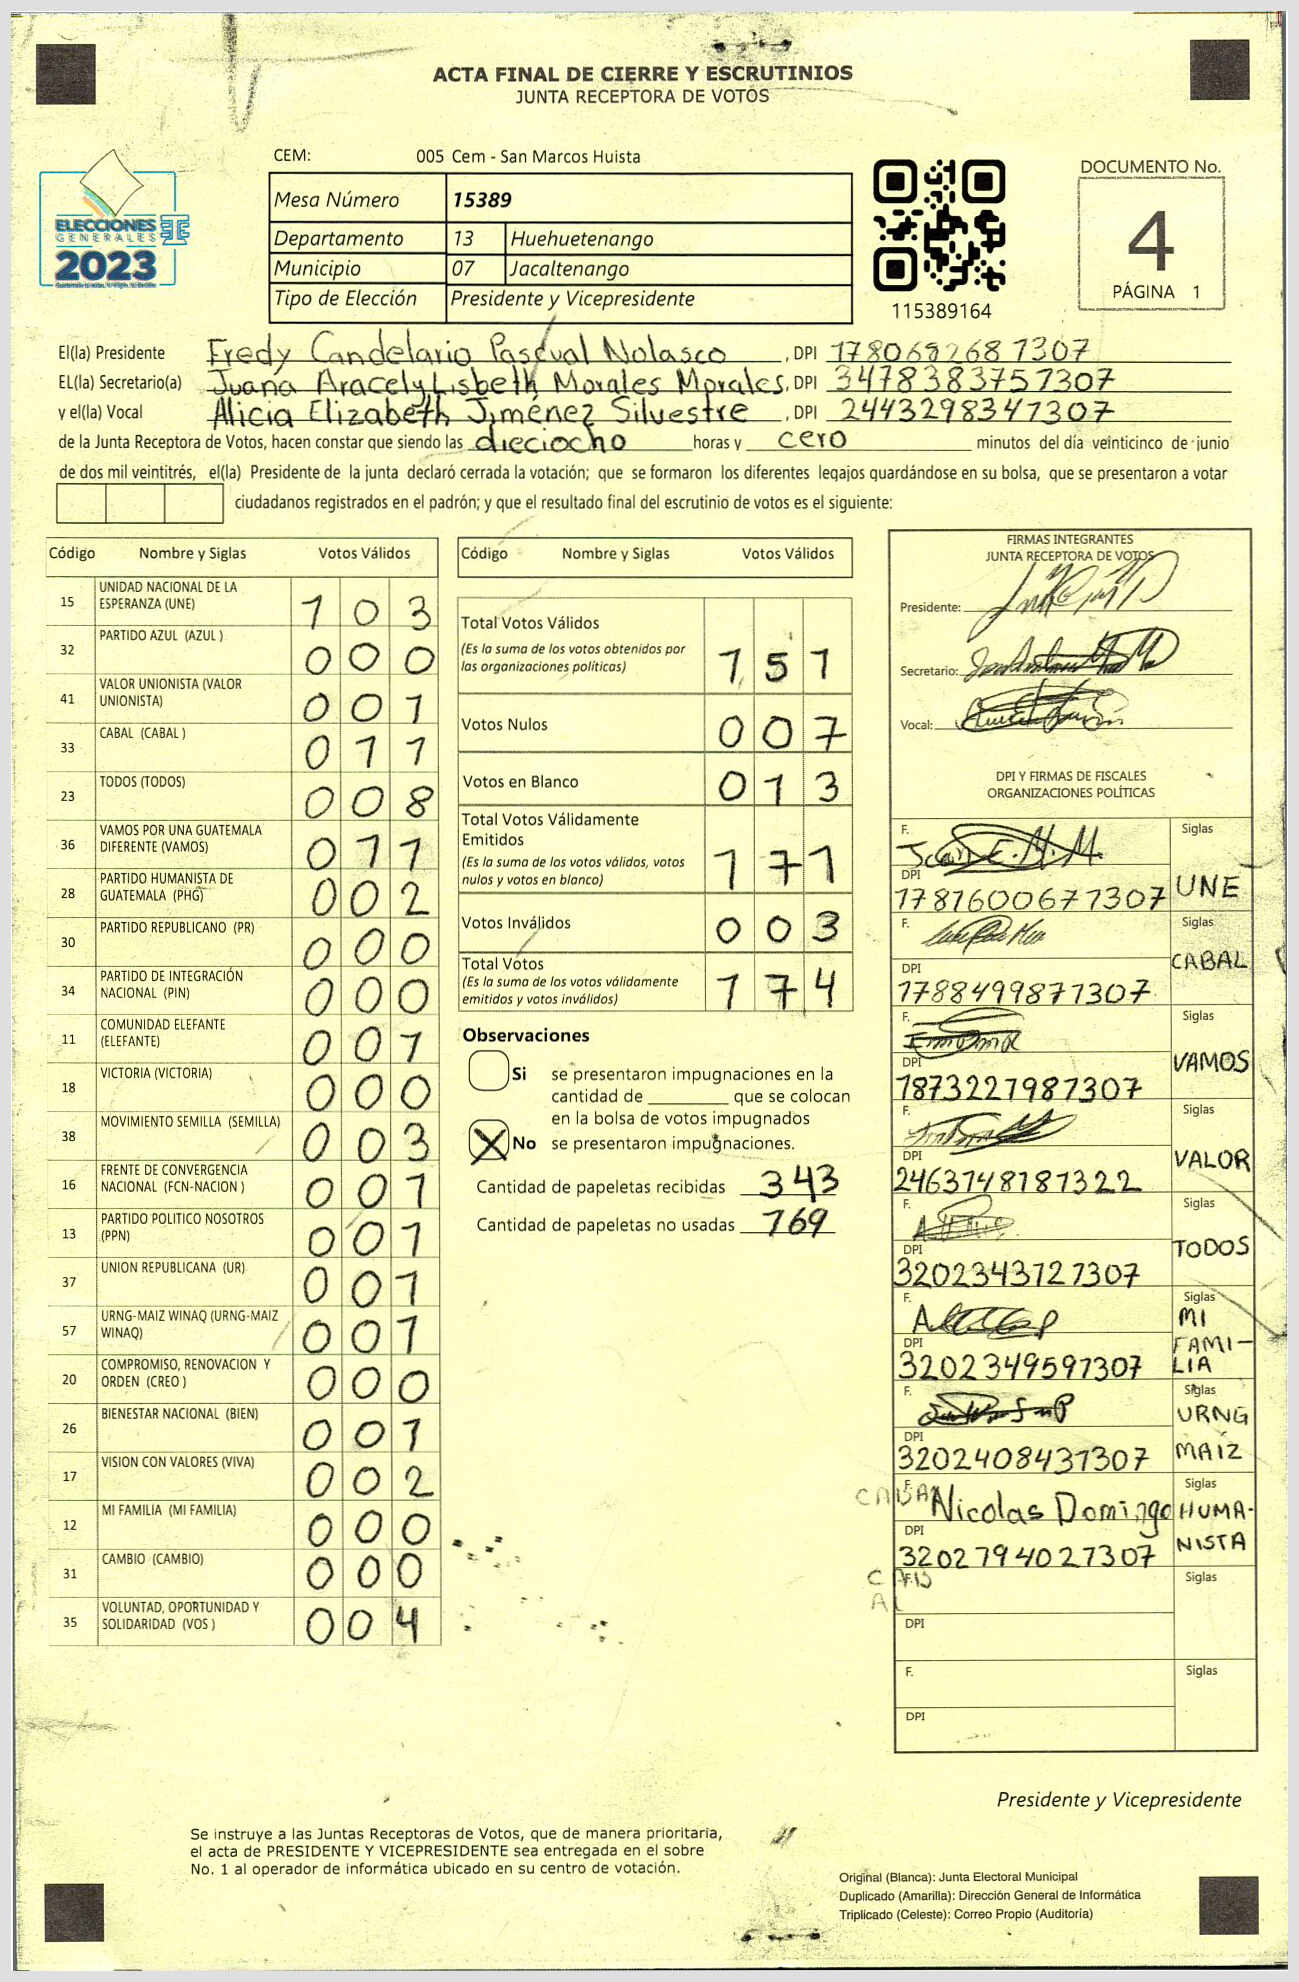 ACTA FINAL DE CIERRE Y ESCRUTINIOS
JUNTA RECEPTORA DE VOTOS
CEM: 005 Cem - San Marcos Huista
Mesa Número 15389
Departamento 13 Huehuetenango
Municipio 07 Jacaltenango
Tipo de Elección Presidente y Vicepresidente
ELECCIONES
GENERALES
2023
115389164
DOCUMENTO No.
4
PÁGINA 1
El(la) Presidente Fredy Candelario Pascual Nolasco, DPI 1780692687307
EL(la) Secretario(a) Juana Aracely Lisbeth Morales Morales, DPI 3478383757307
y el(la) Vocal Alicia Elizabeth Jiménez Silvestre, DPI 2443298347307
de la Junta Receptora de Votos, hacen constar que siendo las dieciocho horas y cero minutos del día veinticinco de junio
de dos mil veintitrés, el(la) Presidente de la junta declaró cerrada la votación; que se formaron los diferentes legajos quardándose en su bolsa, que se presentaron a votar
ciudadanos registrados en el padrón; y que el resultado final del escrutinio de votos es el siguiente:
Código Nombre y Siglas Votos Válidos
15 UNIDAD NACIONAL DE LA
ESPERANZA (UNE) 103
32 PARTIDO AZUL (AZUL ) 000
41 VALOR UNIONISTA (VALOR
UNIONISTA) 001
33 CABAL (CABAL ) 011
23 TODOS (TODOS) 008
36 VAMOS POR UNA GUATEMALA
DIFERENTE (VAMOS) 011
28 PARTIDO HUMANISTA DE
GUATEMALA (PHG) 002
30 PARTIDO REPUBLICANO (PR) 000
34 PARTIDO DE INTEGRACIÓN
NACIONAL (PIN) 000
11 COMUNIDAD ELEFANTE
(ELEFANTE) 001
18 VICTORIA (VICTORIA) 000
38 MOVIMIENTO SEMILLA (SEMILLA) 003
16 FRENTE DE CONVERGENCIA
NACIONAL (FCN-NACION ) 001
13 PARTIDO POLITICO NOSOTROS
(PPN) 001
37 UNION REPUBLICANA (UR) 001
57 URNG-MAIZ WINAQ (URNG-MAIZ
WINAQ) 001
20 COMPROMISO, RENOVACION Y
ORDEN (CREO ) 000
26 BIENESTAR NACIONAL (BIEN) 001
17 VISION CON VALORES (VIVA) 002
12 MI FAMILIA (MI FAMILIA) 000
31 CAMBIO (CAMBIO) 000
35 VOLUNTAD, OPORTUNIDAD Y
SOLIDARIDAD (VOS ) 004
Código Nombre y Siglas Votos Válidos
Total Votos Válidos
(Es la suma de los votos obtenidos por
las organizaciones politicas) 151
Votos Nulos 007
Votos en Blanco 013
Total Votos Válidamente
Emitidos
(Es la suma de los votos válidos, votos
nulos y votos en blanco) 171
Votos Inválidos 003
Total Votos
(Es la suma de los votos válidamente
emitidos y votos inválidos) 174
Observaciones
Si se presentaron impugnaciones en la
cantidad de ________ que se colocan
en la bolsa de votos impugnados
X No se presentaron impugnaciones.
Cantidad de papeletas recibidas 343
Cantidad de papeletas no usadas 169
FIRMAS INTEGRANTES
JUNTA RECEPTORA DE VOTOS
Presidente:
Secretario:
Vocal:
DPI Y FIRMAS DE FISCALES
ORGANIZACIONES POLÍTICAS
F. Siglas
DPI
1781600671307 UNE
F. Siglas
DPI CABAL
1788499871307
F. Siglas
DPI VAMOS
1873221987307
F. Siglas
DPI VALOR
2463748187322
F. Siglas
DPI TODOS
3202343727307
F. Siglas
MI
DPI FAMI-
3202349597307 LIA
F. Siglas
URNG
DPI MAÍZ
3202408437307
F. Nicolas Domingo Siglas
HUMA-
DPI NISTA
3202794027307
F. Siglas
DPI
F. Siglas
DPI
Presidente y Vicepresidente
Se instruye a las Juntas Receptoras de Votos, que de manera prioritaria,
el acta de PRESIDENTE Y VICEPRESIDENTE sea entregada en el sobre
No. 1 al operador de informática ubicado en su centro de votación.
Original (Blanca): Junta Electoral Municipal
Duplicado (Amarilla): Dirección General de Informática
Triplicado (Celeste): Correo Propio (Auditoria)